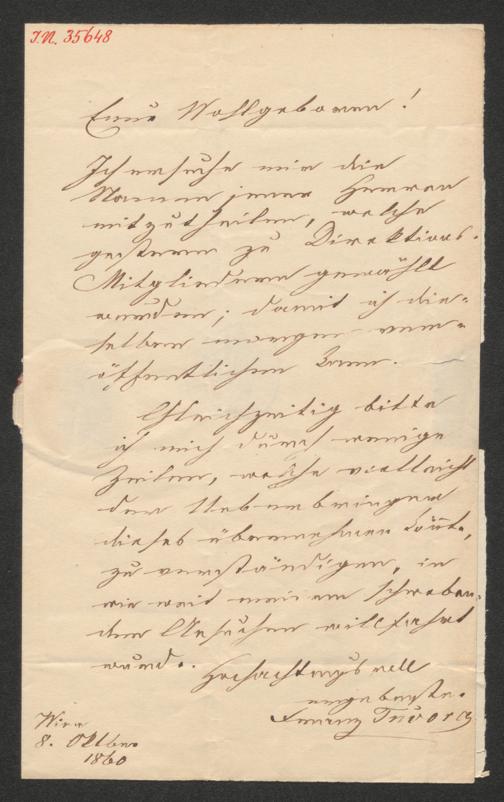 I.N. 35648
Euer Wohlgeboren!
Ich ersuche mir die
Namen jener Herren
mitzutheilen, welche
gestern zu Direktions-
Mitgliedern gewählt
wurden; damit ich die-
selben morgen ver-
öffentlichen kann.
Gleichzeitig bitte
ich mich durch wenige
Zeilen, welche vielleicht
der Ueberbringer
dieses übernehmen könnte,
zu verständigen, in
wie weit meinem schweben-
den Ansuchen willfahrt
wurde.
Hochachtungsvoll
ergebenster
Franz Tuvora
Wien
8. Oktber
1860